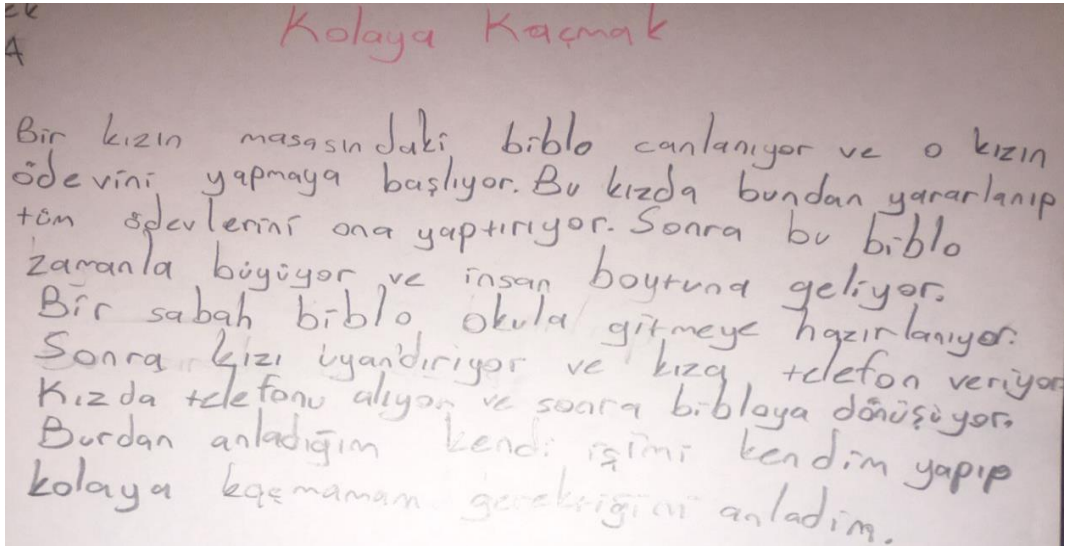 Kolaya Kaçmak
A
Bir kızın masasındaki biblo canlanıyor ve o kızın
ödevini yapmaya başlıyor. Bu kızda bundan yararlanıp
tüm ödevlerini ona yaptırıyor. Sonra bu biblo
zamanla büyüyor ve insan boytuna geliyor.
Bir sabah biblo okula gitmeye hazırlanıyor.
Sonra kızı uyandırıyor ve kıza telefon veriyor
Kızda telefonu alıyor ve sonra bibloya dönüşüyor.
Burdan anladığım kendi işimi kendim yapıp
kolaya kaçmamam gerektiğini anladım.